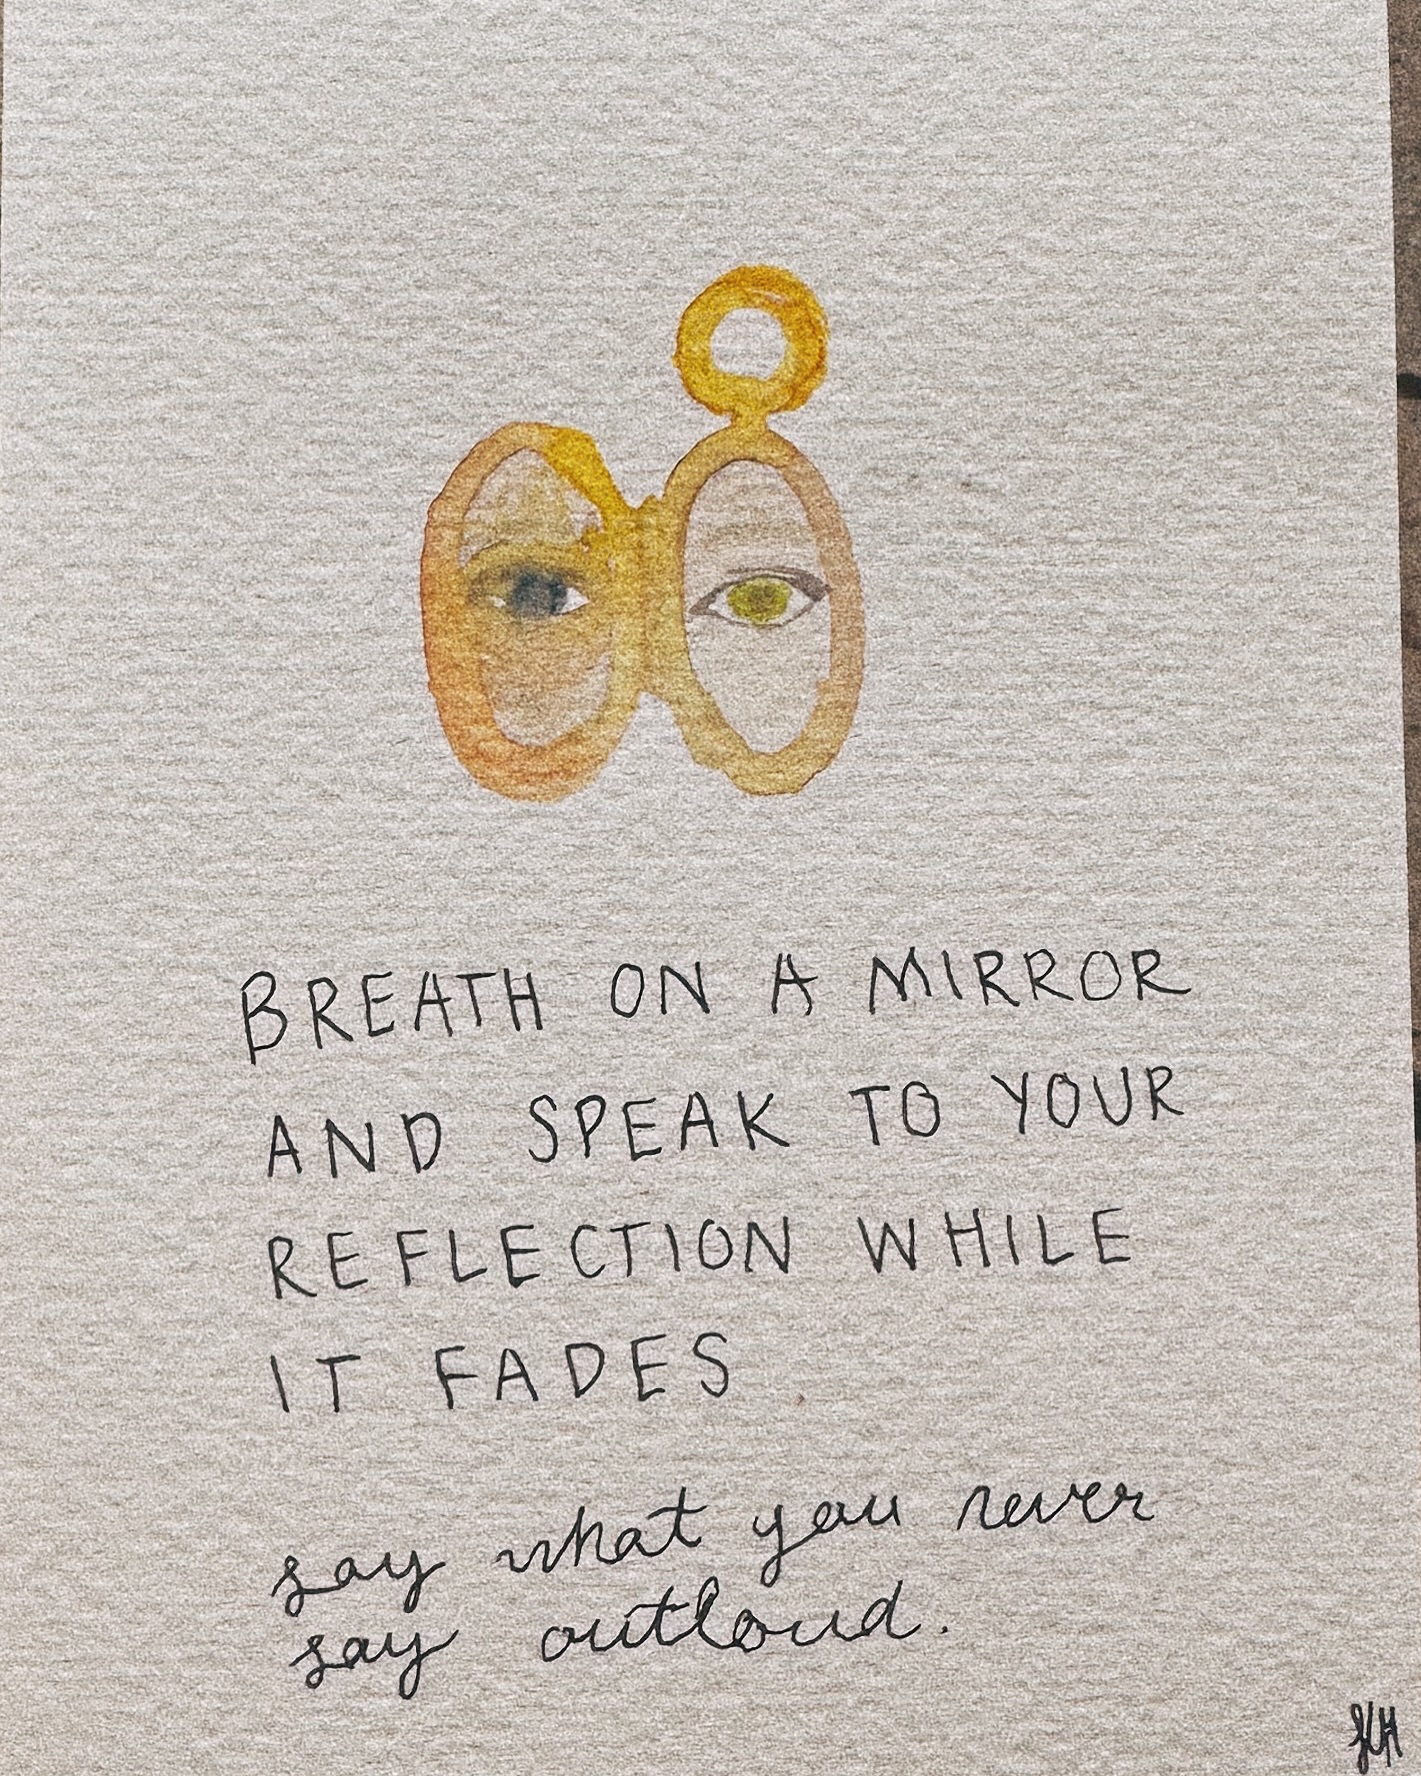 BREATH ON A MIRROR
AND SPEAK TO YOUR
REFLECTION WHILE
IT FADES
say what you never
say outloud.